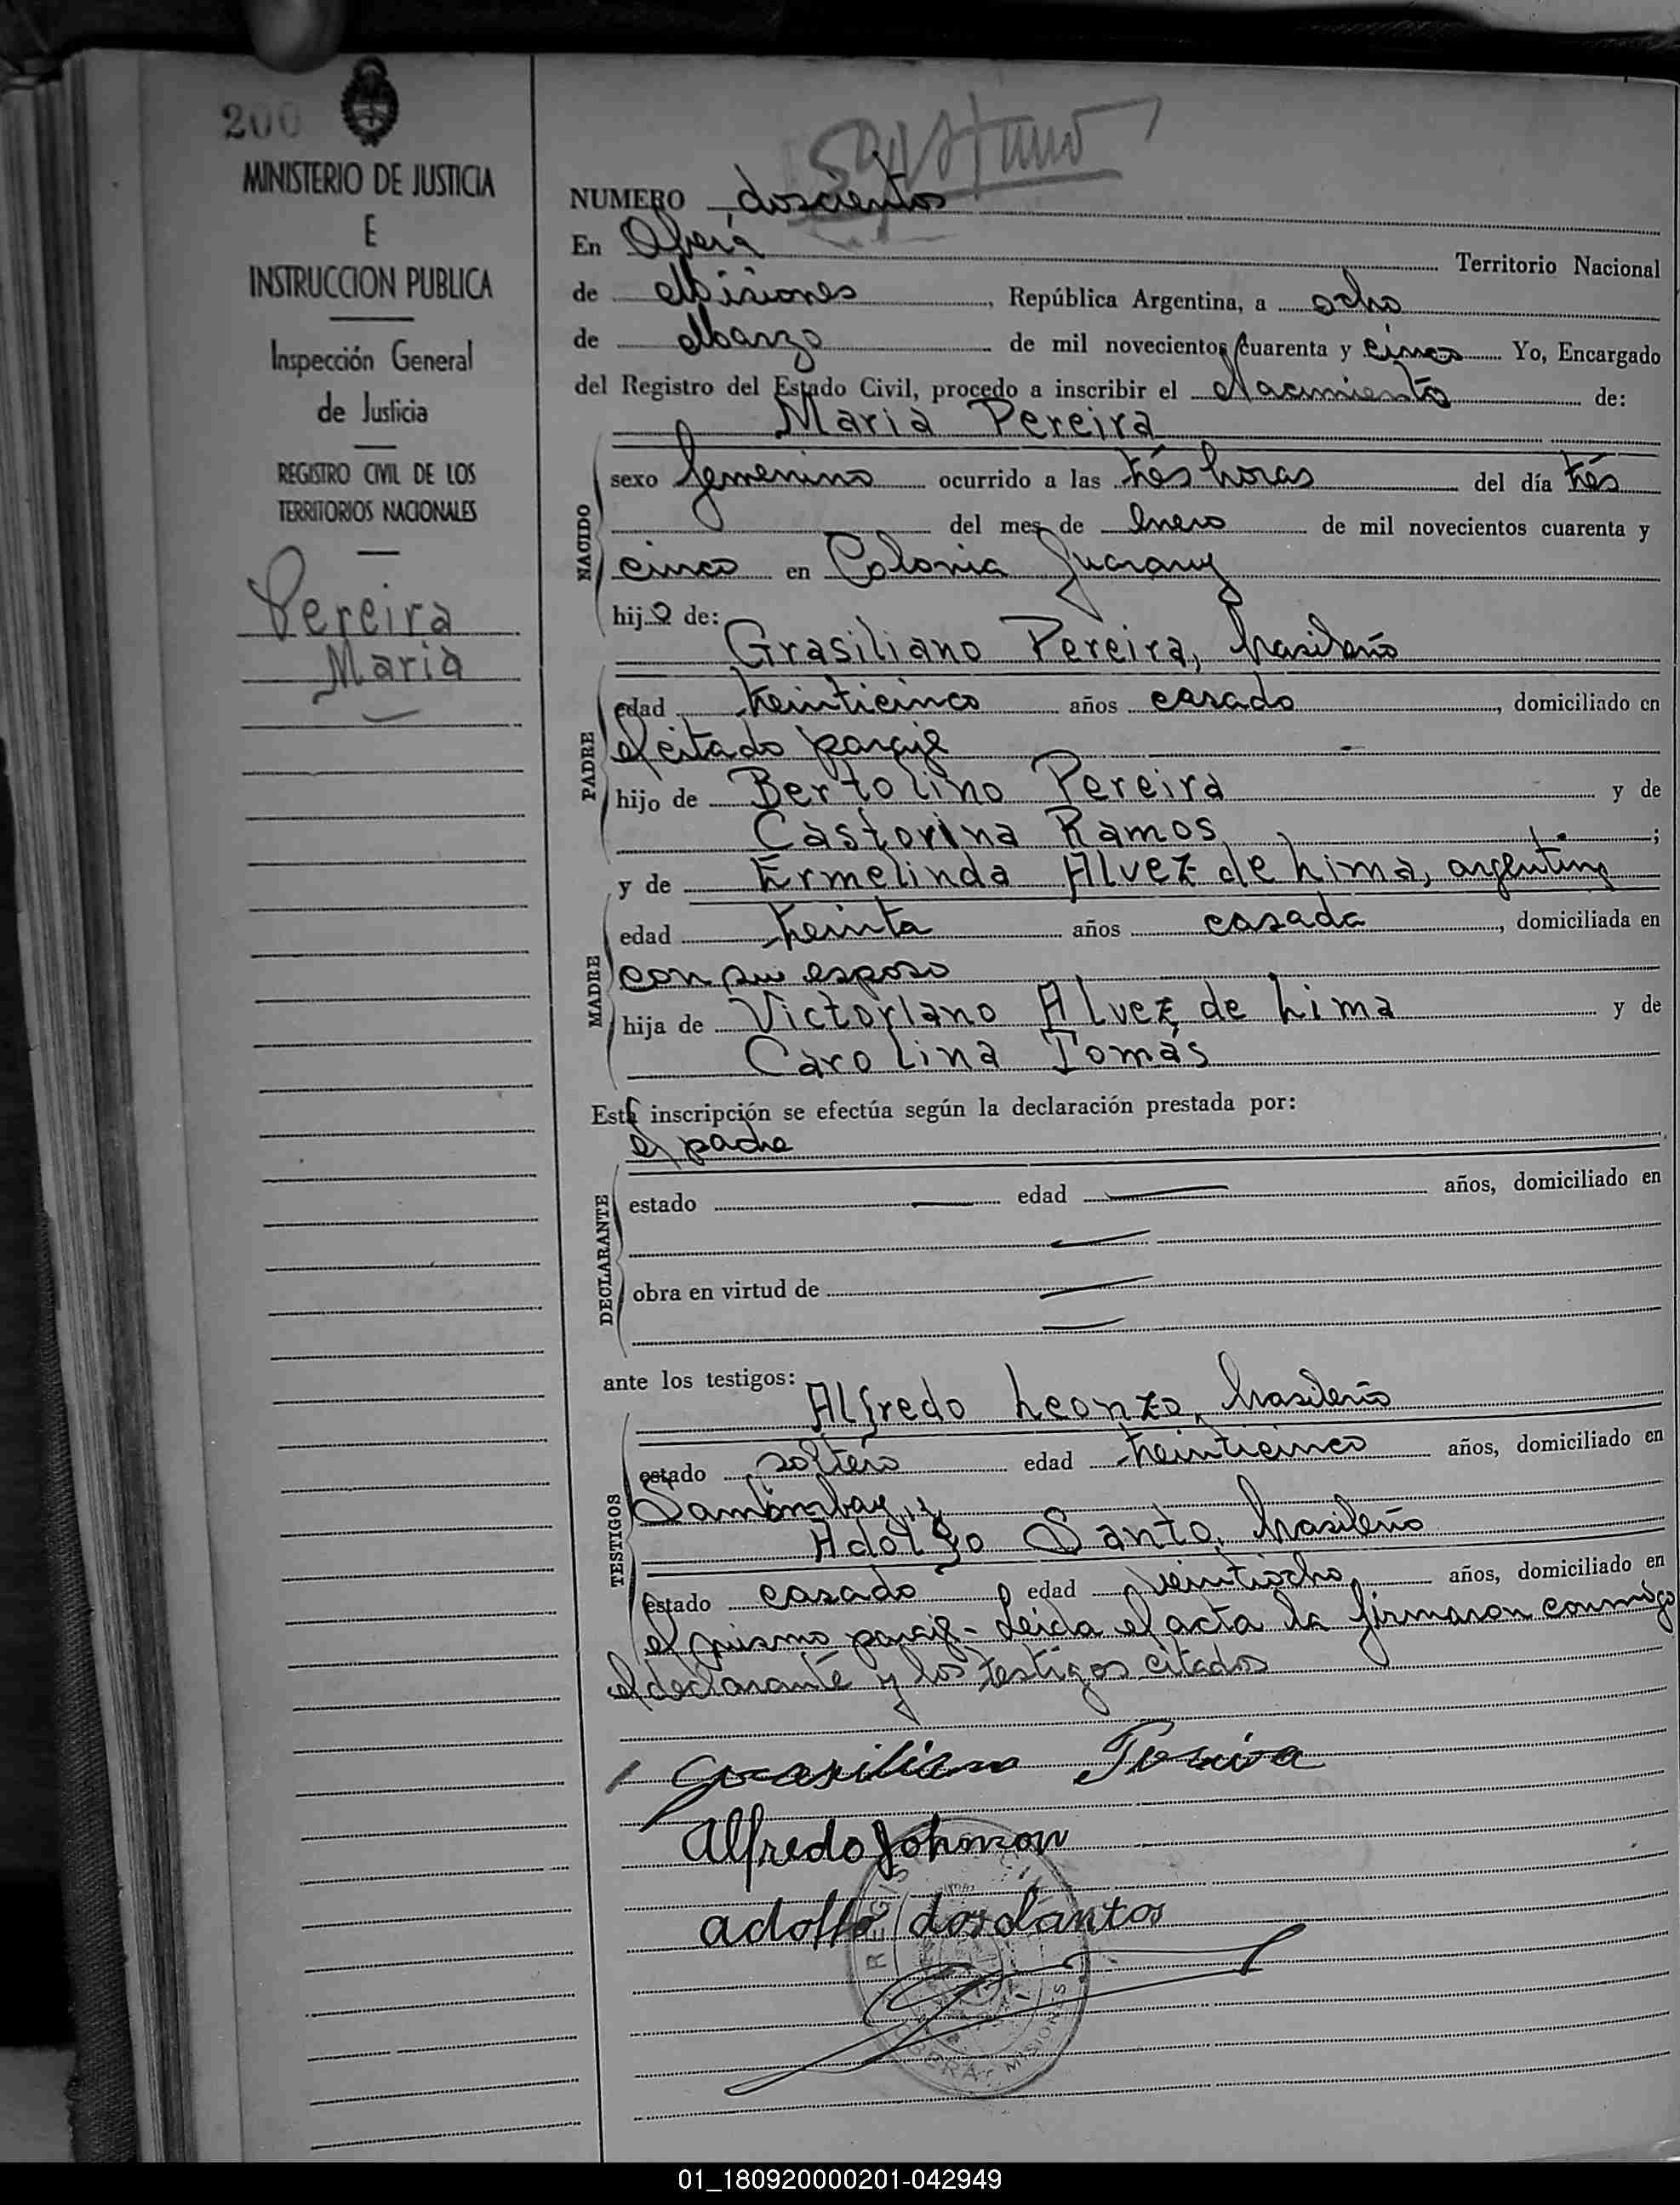 200
MINISTERIO DE JUSTICIA
E
INSTRUCCION PUBLICA
Inspección General
de Justicia
REGISTRO CIVIL DE LOS
TERRITORIOS NACIONALES
Pereira
Maria
NUMERO doscientos
En Oberá Territorio Nacional
de Misiones, República Argentina, a ocho
de Marzo de mil novecientos cuarenta y cinco Yo, Encargado
del Registro del Estado Civil, procedo a inscribir el Nacimiento de:
Maria Pereira
NACIDO
sexo femenino ocurrido a las trés horas del día trés
del mes de Enero de mil novecientos cuarenta y
cinco en Colonia Guarany
hija de:
Grasiliano Pereira, brasileño
PADRE
edad treinticinco años casado, domiciliado en
el citado paraje
hijo de Bertolino Pereira y de
Castorina Ramos;
y de Ermelinda Alvez de Lima, argentina
MADRE
edad treinta años casada, domiciliada en
con su esposo
hija de Victoriano Alvez de Lima y de
Carolina Tomás
Esta inscripción se efectúa según la declaración prestada por:
el padre
DECLARANTE
estado edad años, domiciliado en
obra en virtud de
ante los testigos:
Alfredo Leonzo, brasileño
TESTIGOS
estado soltero edad treinticinco años, domiciliado en
Samambay, y
Adolfo Santo, brasileño
estado casado edad veintiocho años, domiciliado en
el mismo paraje - Leida el acta la firmaron conmigo
el declarante y los testigos citados
Grasiliano Pereira
Alfredo Johnson
adolfo dos Santos
OBERA - MISIONES
01_180920000201-042949